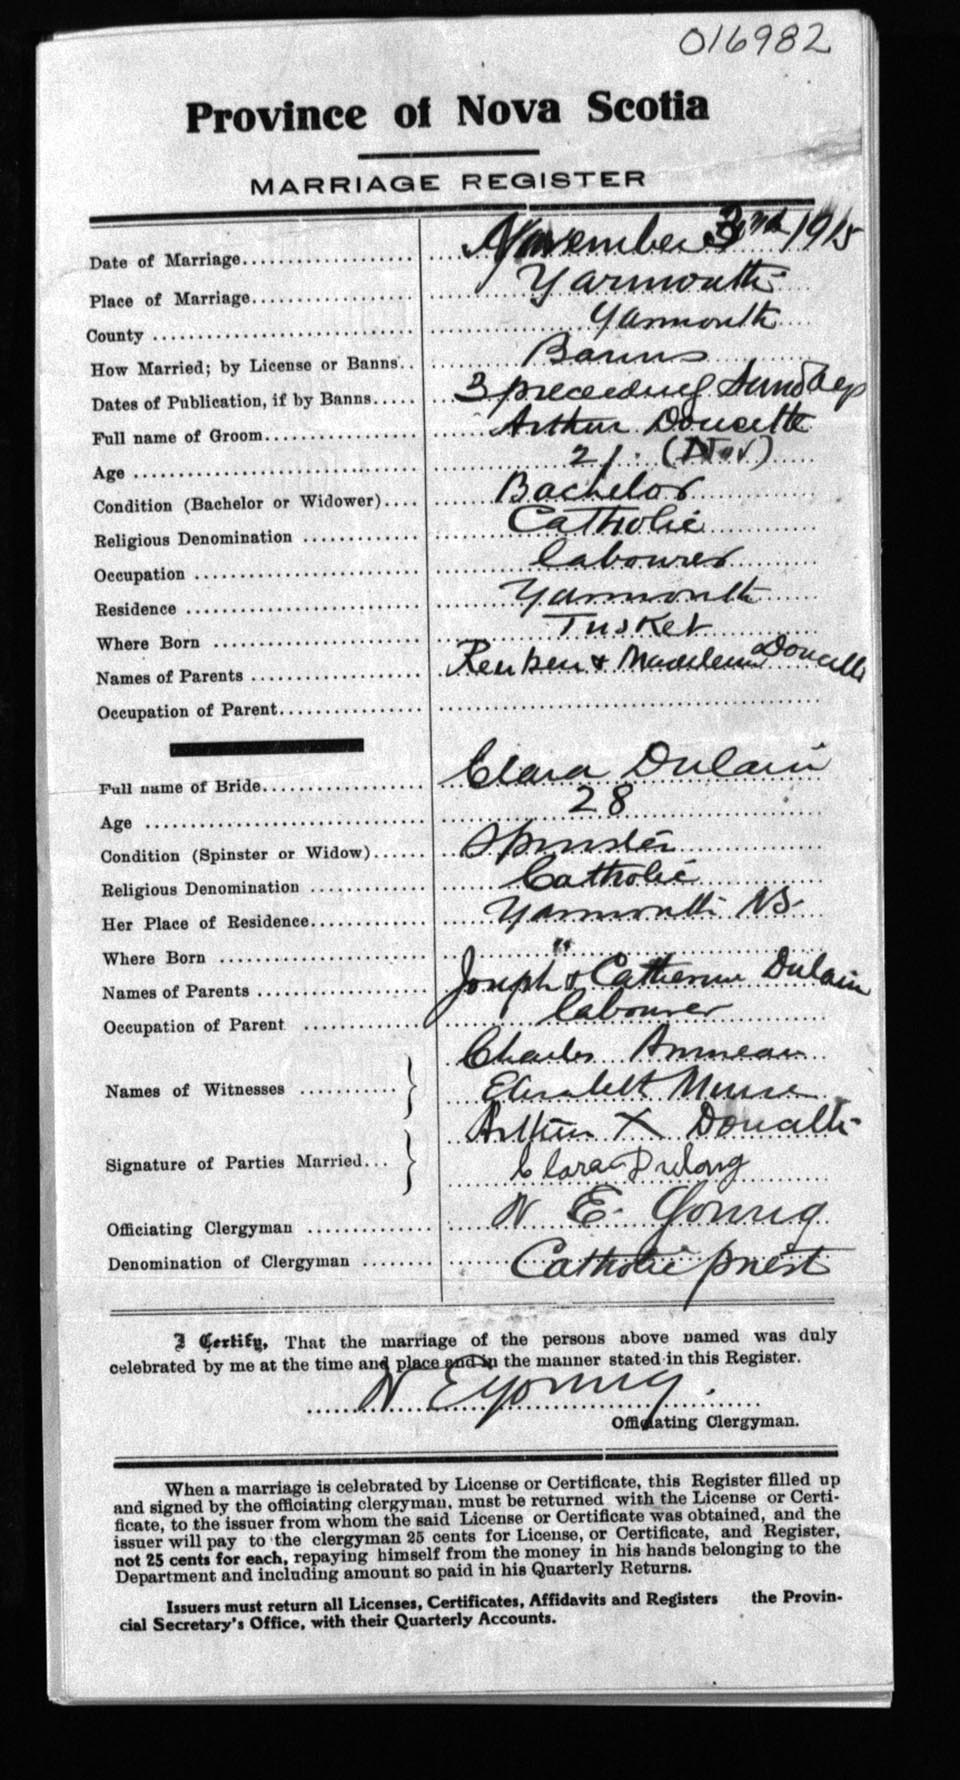 016982
Province of Nova Scotia
MARRIAGE REGISTER
Date of Marriage November 3rd 1915
Place of Marriage Yarmouth
County Yarmouth
How Married; by License or Banns Banns
Dates of Publication, if by Banns 3 preceding Sundays
Full name of Groom Arthur Doucette
Age 21 (Nov)
Condition (Bachelor or Widower) Bachelor
Religious Denomination Catholic
Occupation labourer
Residence Yarmouth
Where Born Tusket
Names of Parents Reuben & Madeleine Doucette
Occupation of Parent
Full name of Bride Clara Dulain
Age 28
Condition (Spinster or Widow) Spinster
Religious Denomination Catholic
Her Place of Residence Yarmouth NS
Where Born "
Names of Parents Joseph & Catherine Dulain
Occupation of Parent labourer
Names of Witnesses Charles
Elizabeth Muise
Signature of Parties Married Arthur X Doucette
Clara Dulong
Officiating Clergyman W E Young
Denomination of Clergyman Catholic priest
I Certify, That the marriage of the persons above named was duly
celebrated by me at the time and place and in the manner stated in this Register.
W E Young.
Officiating Clergyman.
When a marriage is celebrated by License or Certificate, this Register filled up
and signed by the officiating clergyman, must be returned with the License or Certi-
ficate, to the issuer from whom the said License or Certificate was obtained, and the
issuer will pay to the clergyman 25 cents for License, or Certificate, and Register,
not 25 cents for each, repaying himself from the money in his hands belonging to the
Department and including amount so paid in his Quarterly Returns.
Issuers must return all Licenses, Certificates, Affidavits and Registers the Provin-
cial Secretary's Office, with their Quarterly Accounts.